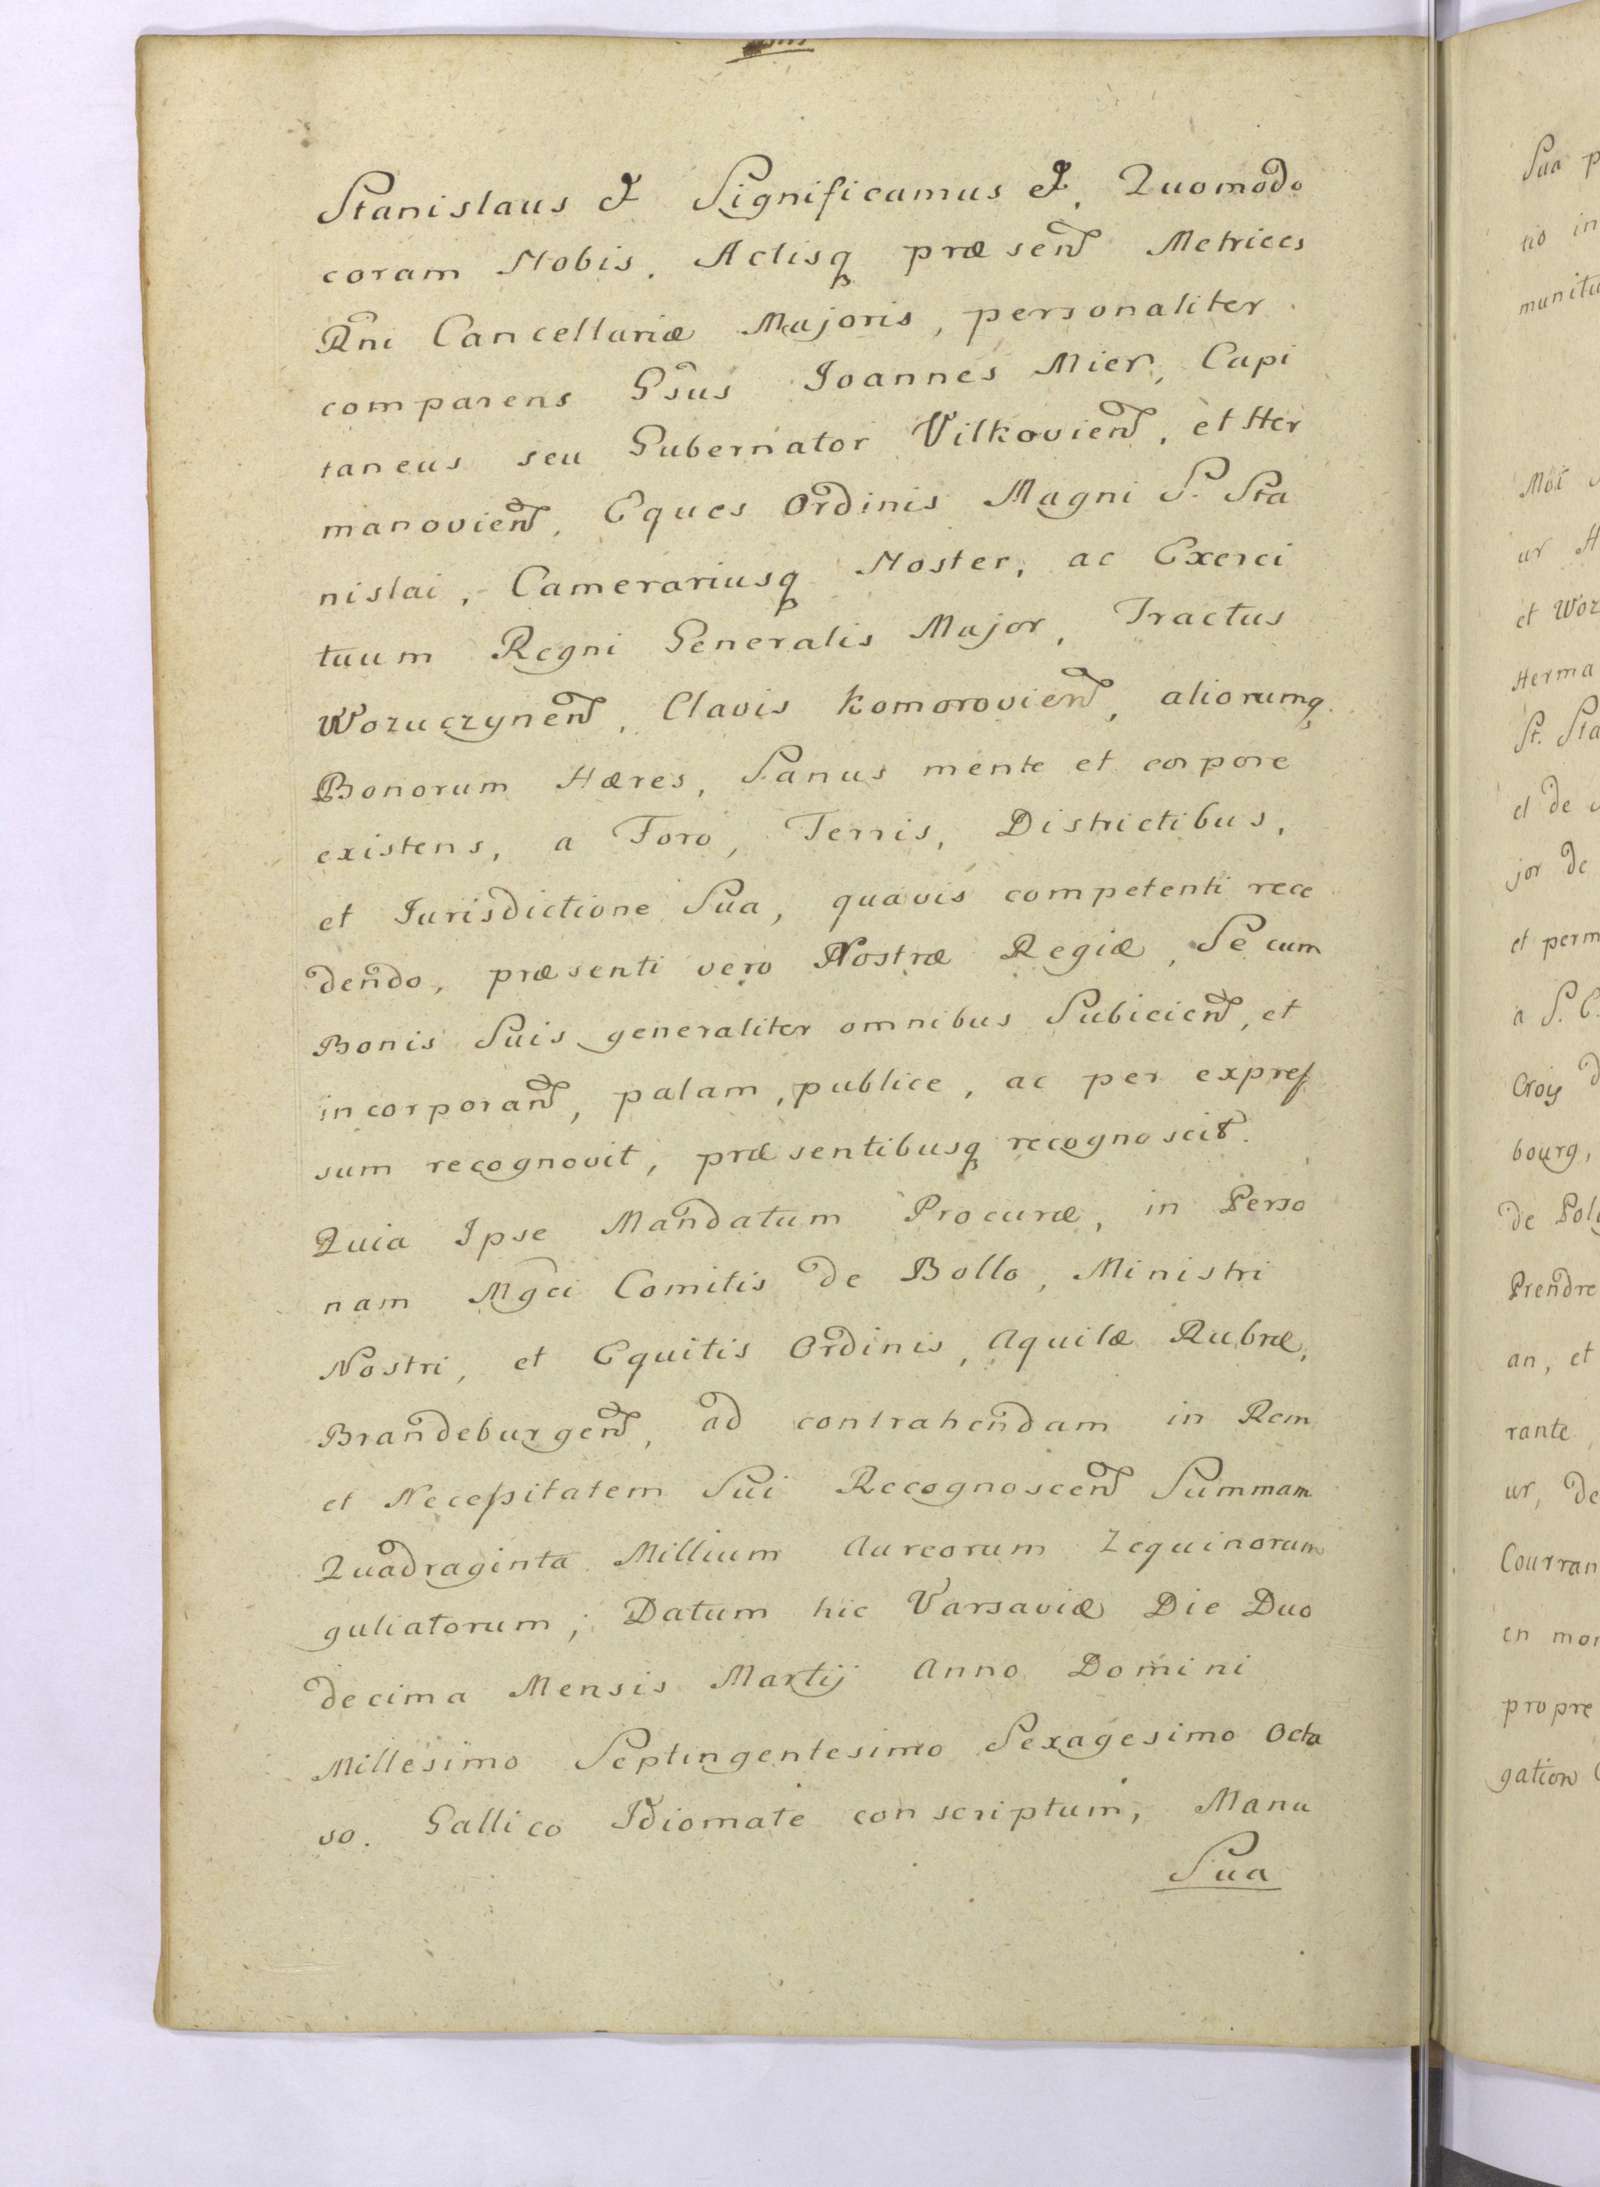 Stanislaus & Significamus &, Quomodo
coram Nobis, Actisq præsen Metrices
Rni Cancellariæ Majoris, personaliter
comparens Gsus Joannes Mier, Capi
taneus seu Gubernator Vilkovien, et Her
manovien, Eques Ordinis Magni S. Sta
nislai, Camerariusq Noster, ac Exerci
tuum Regni Generalis Major, Tractus
Wozuczynen, Clavis Komorovien, aliorumq
Bonorum Hæres, Sanus mente et corpore
existens, a Foro, Terris, Districtibus,
et Jurisdictione Sua, quavis competenti rece
dendo, præsenti vero Nostræ Regiæ, Se cum
Bonis Suis generaliter omnibus Subiicien, et
incorporan, palam, publice, ac per expres
sum recognovit, præsentibusq recognoscit.
Quia Ipse Mandatum Procuræ, in Perso
nam Mgci Comitis de Bollo, Ministri
Nostri, et Equitis Ordinis, Aquilæ Rubræ,
Brandeburgen, ad contrahendam in Rem
et Necessitatem Sui Recognoscen Summam
Quadraginta Millium Aureorum Zequinorum
guliatorum; Datum hic Varsaviæ Die Duo
decima Mensis Martij Anno Domini
Millesimo Septingentesimo Sexagesimo Octa
vo. Gallico Idiomate conscriptum, Manu
Sua
Sua p
tio in
munitu
et Woz
Herma
St. Sta
et de
jor de
et perm
a S. C.
Croij d
bourg,
de Polo
Prendre
an, et
rante
ur, de
Courran
en mon
propre
gation